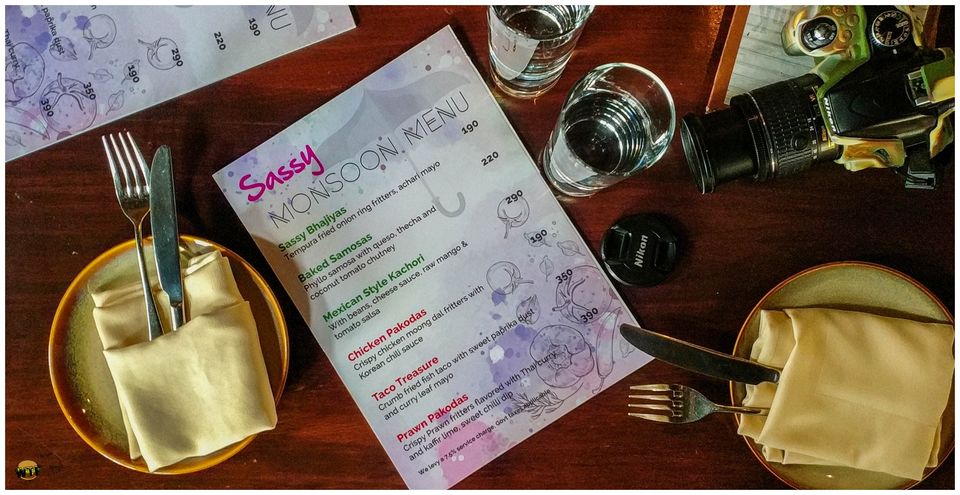 Sassy
MONSOON MENU
Sassy Bhajiyas 190
Tempura fried onion ring fritters, achari mayo
Baked Samosas 220
Phyllo samosa with queso, thecha and
coconut tomato chutney
Mexican Style Kachori 290
With beans, cheese sauce, raw mango &
tomato salsa
Chicken Pakodas 190
Crispy chicken moong dal fritters with
Korean chili sauce
Taco Treasure 350
Crumb fried fish taco with sweet paprika dust
and curry leaf mayo
Prawn Pakodas 390
Crispy Prawn fritters flavored with Thai curry
and kaffir lime, sweet chilli dip
We levy a 7.5% service charge. Govt taxes applicable
NU
190
220
290
190
350
390
paprika dust
Thai curry
Nikon
WTF